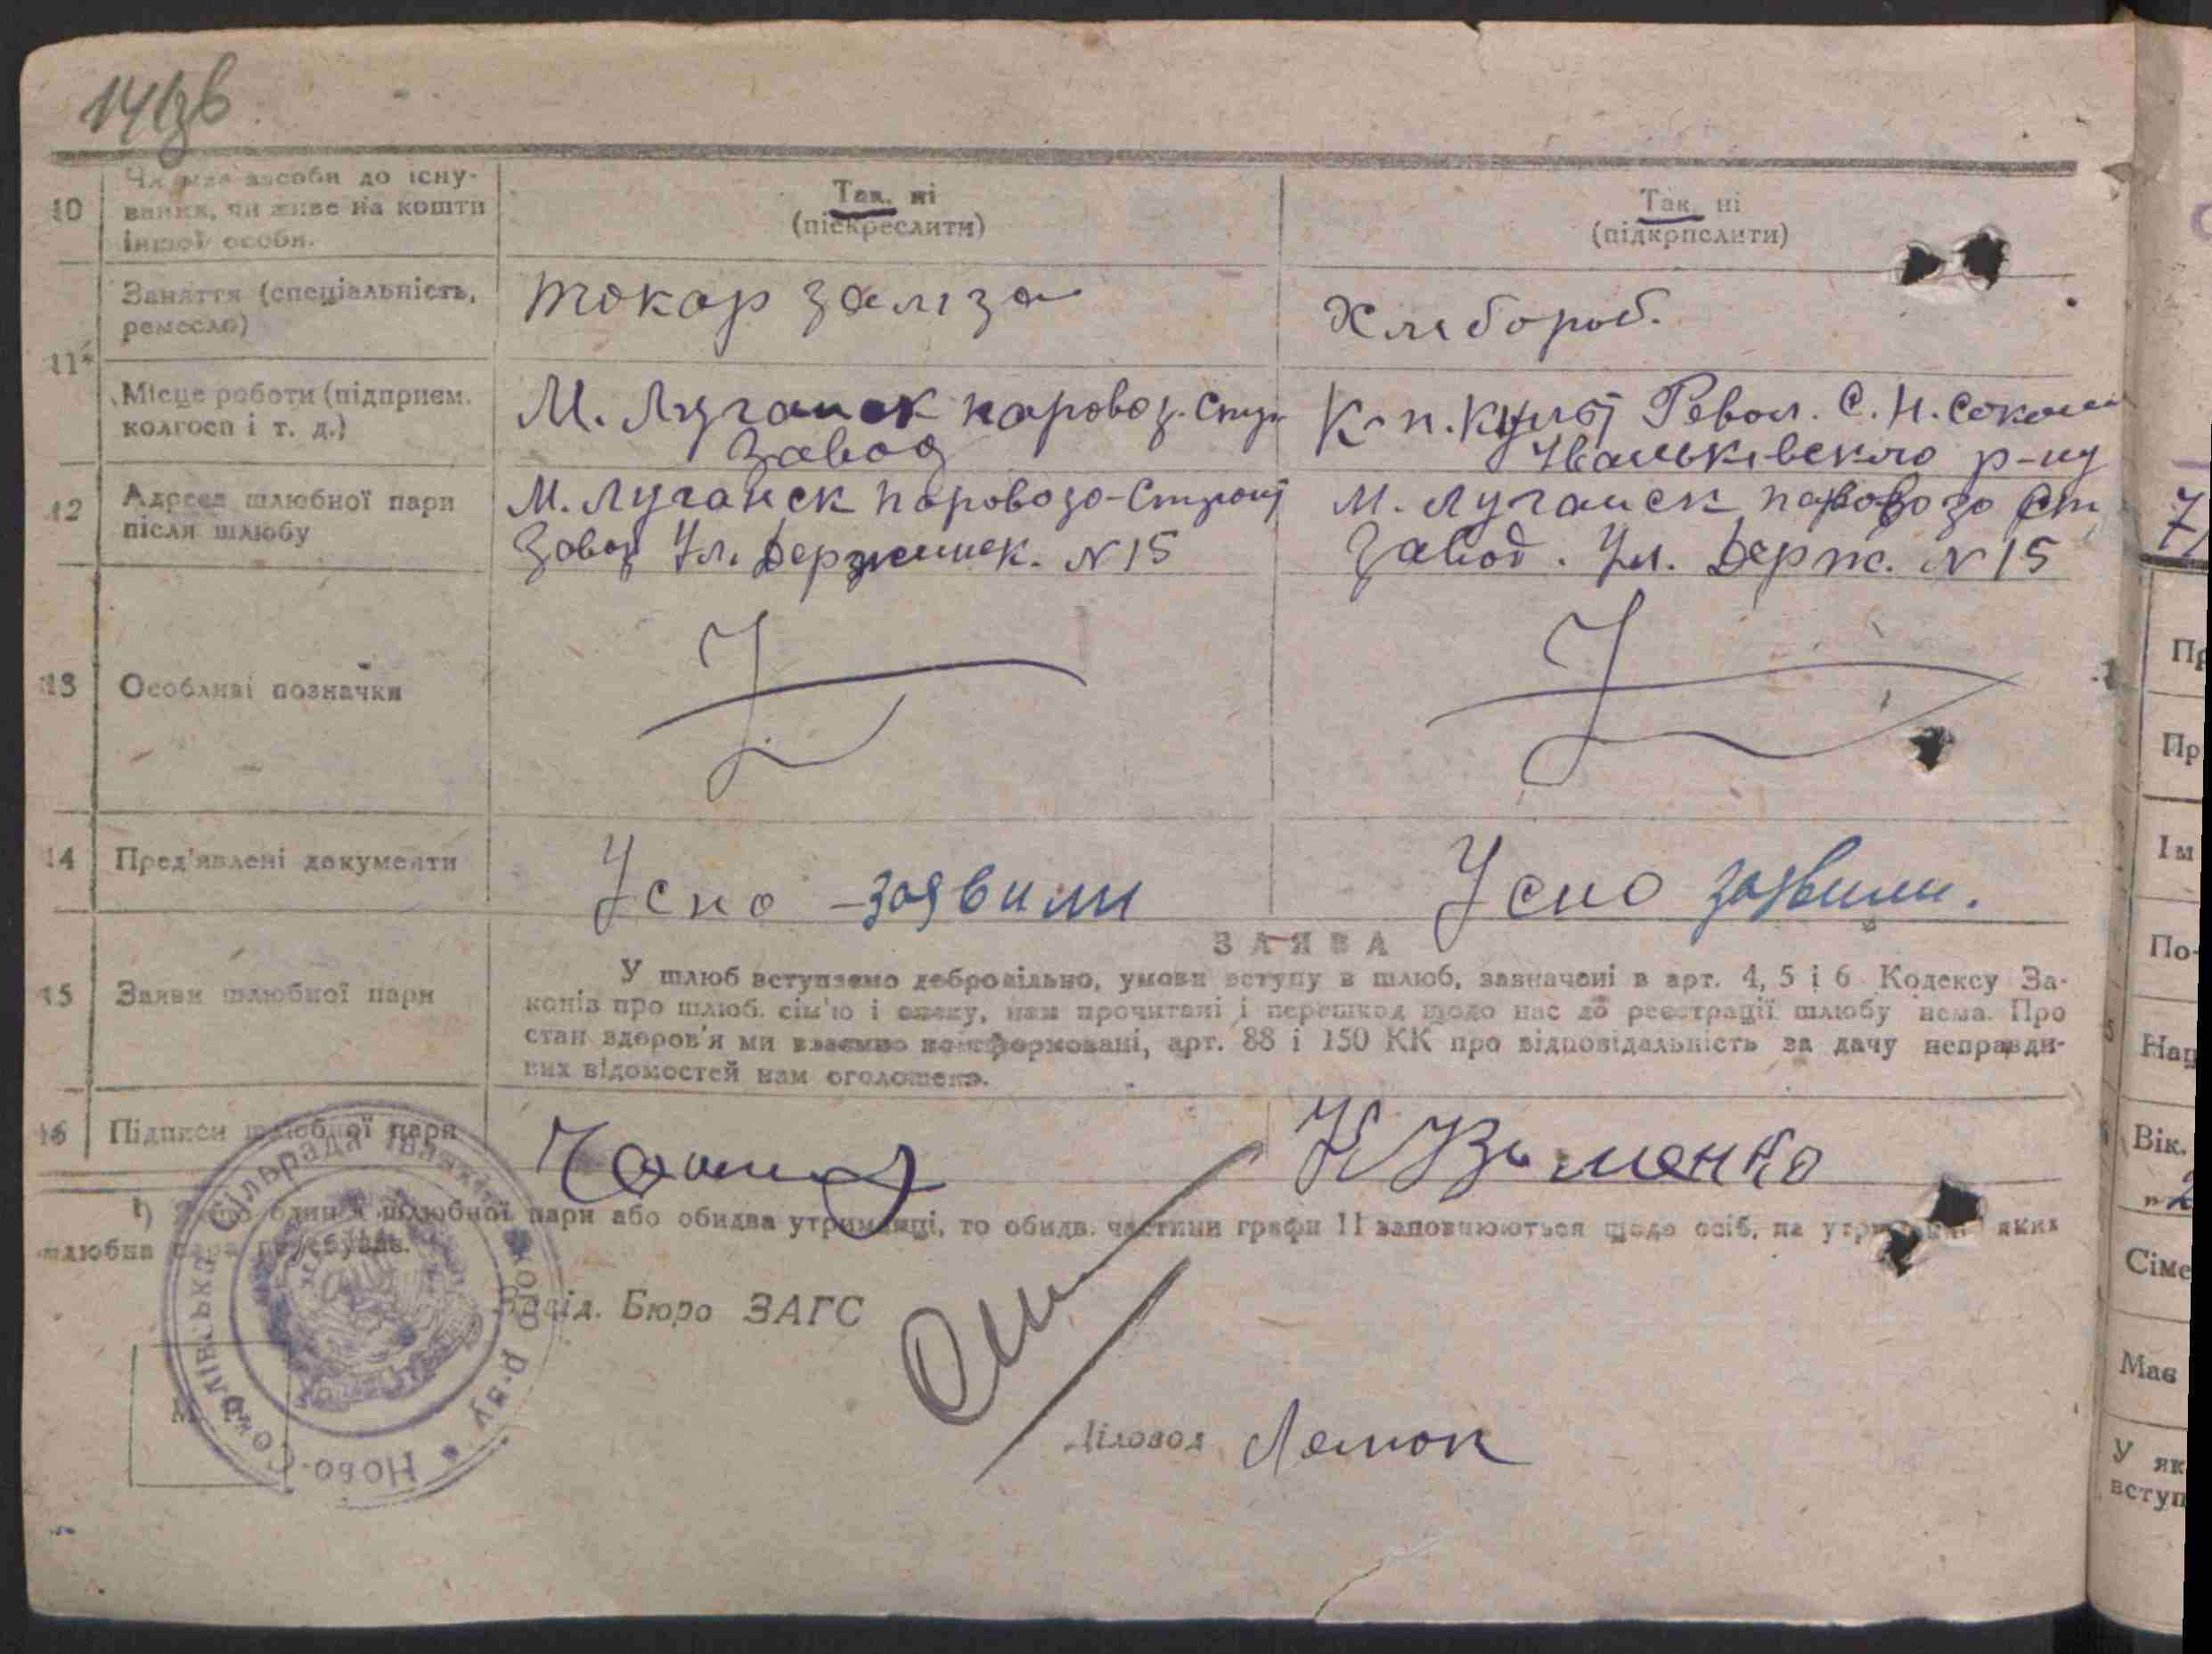 141зв
10
Чи має засоби до існу-
вання, чи живе на кошти
іншої особи.
Так, ні
(піскреслити)
Так, ні
(підкрпслити)
11*
Заняття (спеціальність,
ремесло)
токар заліза
Хлібороб.
Місце роботи (підприєм.
колгосп і т. д.)
М. Луганск паровоз. Стр
завод
К-п. Револ. С. Н. Сокол
Іваньківского р-ну
12
Адреса шлюбної пари
після шлюбу
М. Луганск паровозо-Строит
Завод Ул. Держинск. N 15
М. Луганск паровозо Ст
Завод. Ул. Держ. N 15
13
Особливі позначки
14
Пред'явлені документи
Усно - заявили
Усно заявили.
15
Заяви шлюбної пари
ЗАЯВА
У шлюб вступаємо добровільно, умови вступу в шлюб, зазначені в арт. 4, 5 і 6 Кодексу За-
конів про шлюб. сім'ю і опеку, нам прочитані і перешкод щодо нас до реєстрації шлюбу нема. Про
стан здоров'я ми взаємно поінформовані, арт. 88 і 150 КК про відповідальність за дачу неправди-
вих відомостей нам оголошено.
16
Підписи шлюбної пари
1) Якщо один з шлюбної пари або обидва утриманці, то обидв. частини графи 11 заповнюються щодо осіб, на утриманні яких
шлюбна пара перебуває.
Завід. Бюро ЗАГС
М. П.
Діловод
Ново-Соколівська Сільрада Іваньківського р-ну
Пр
Ім
По-
Нац
Вік.
Сіме
Має
У як
вступ